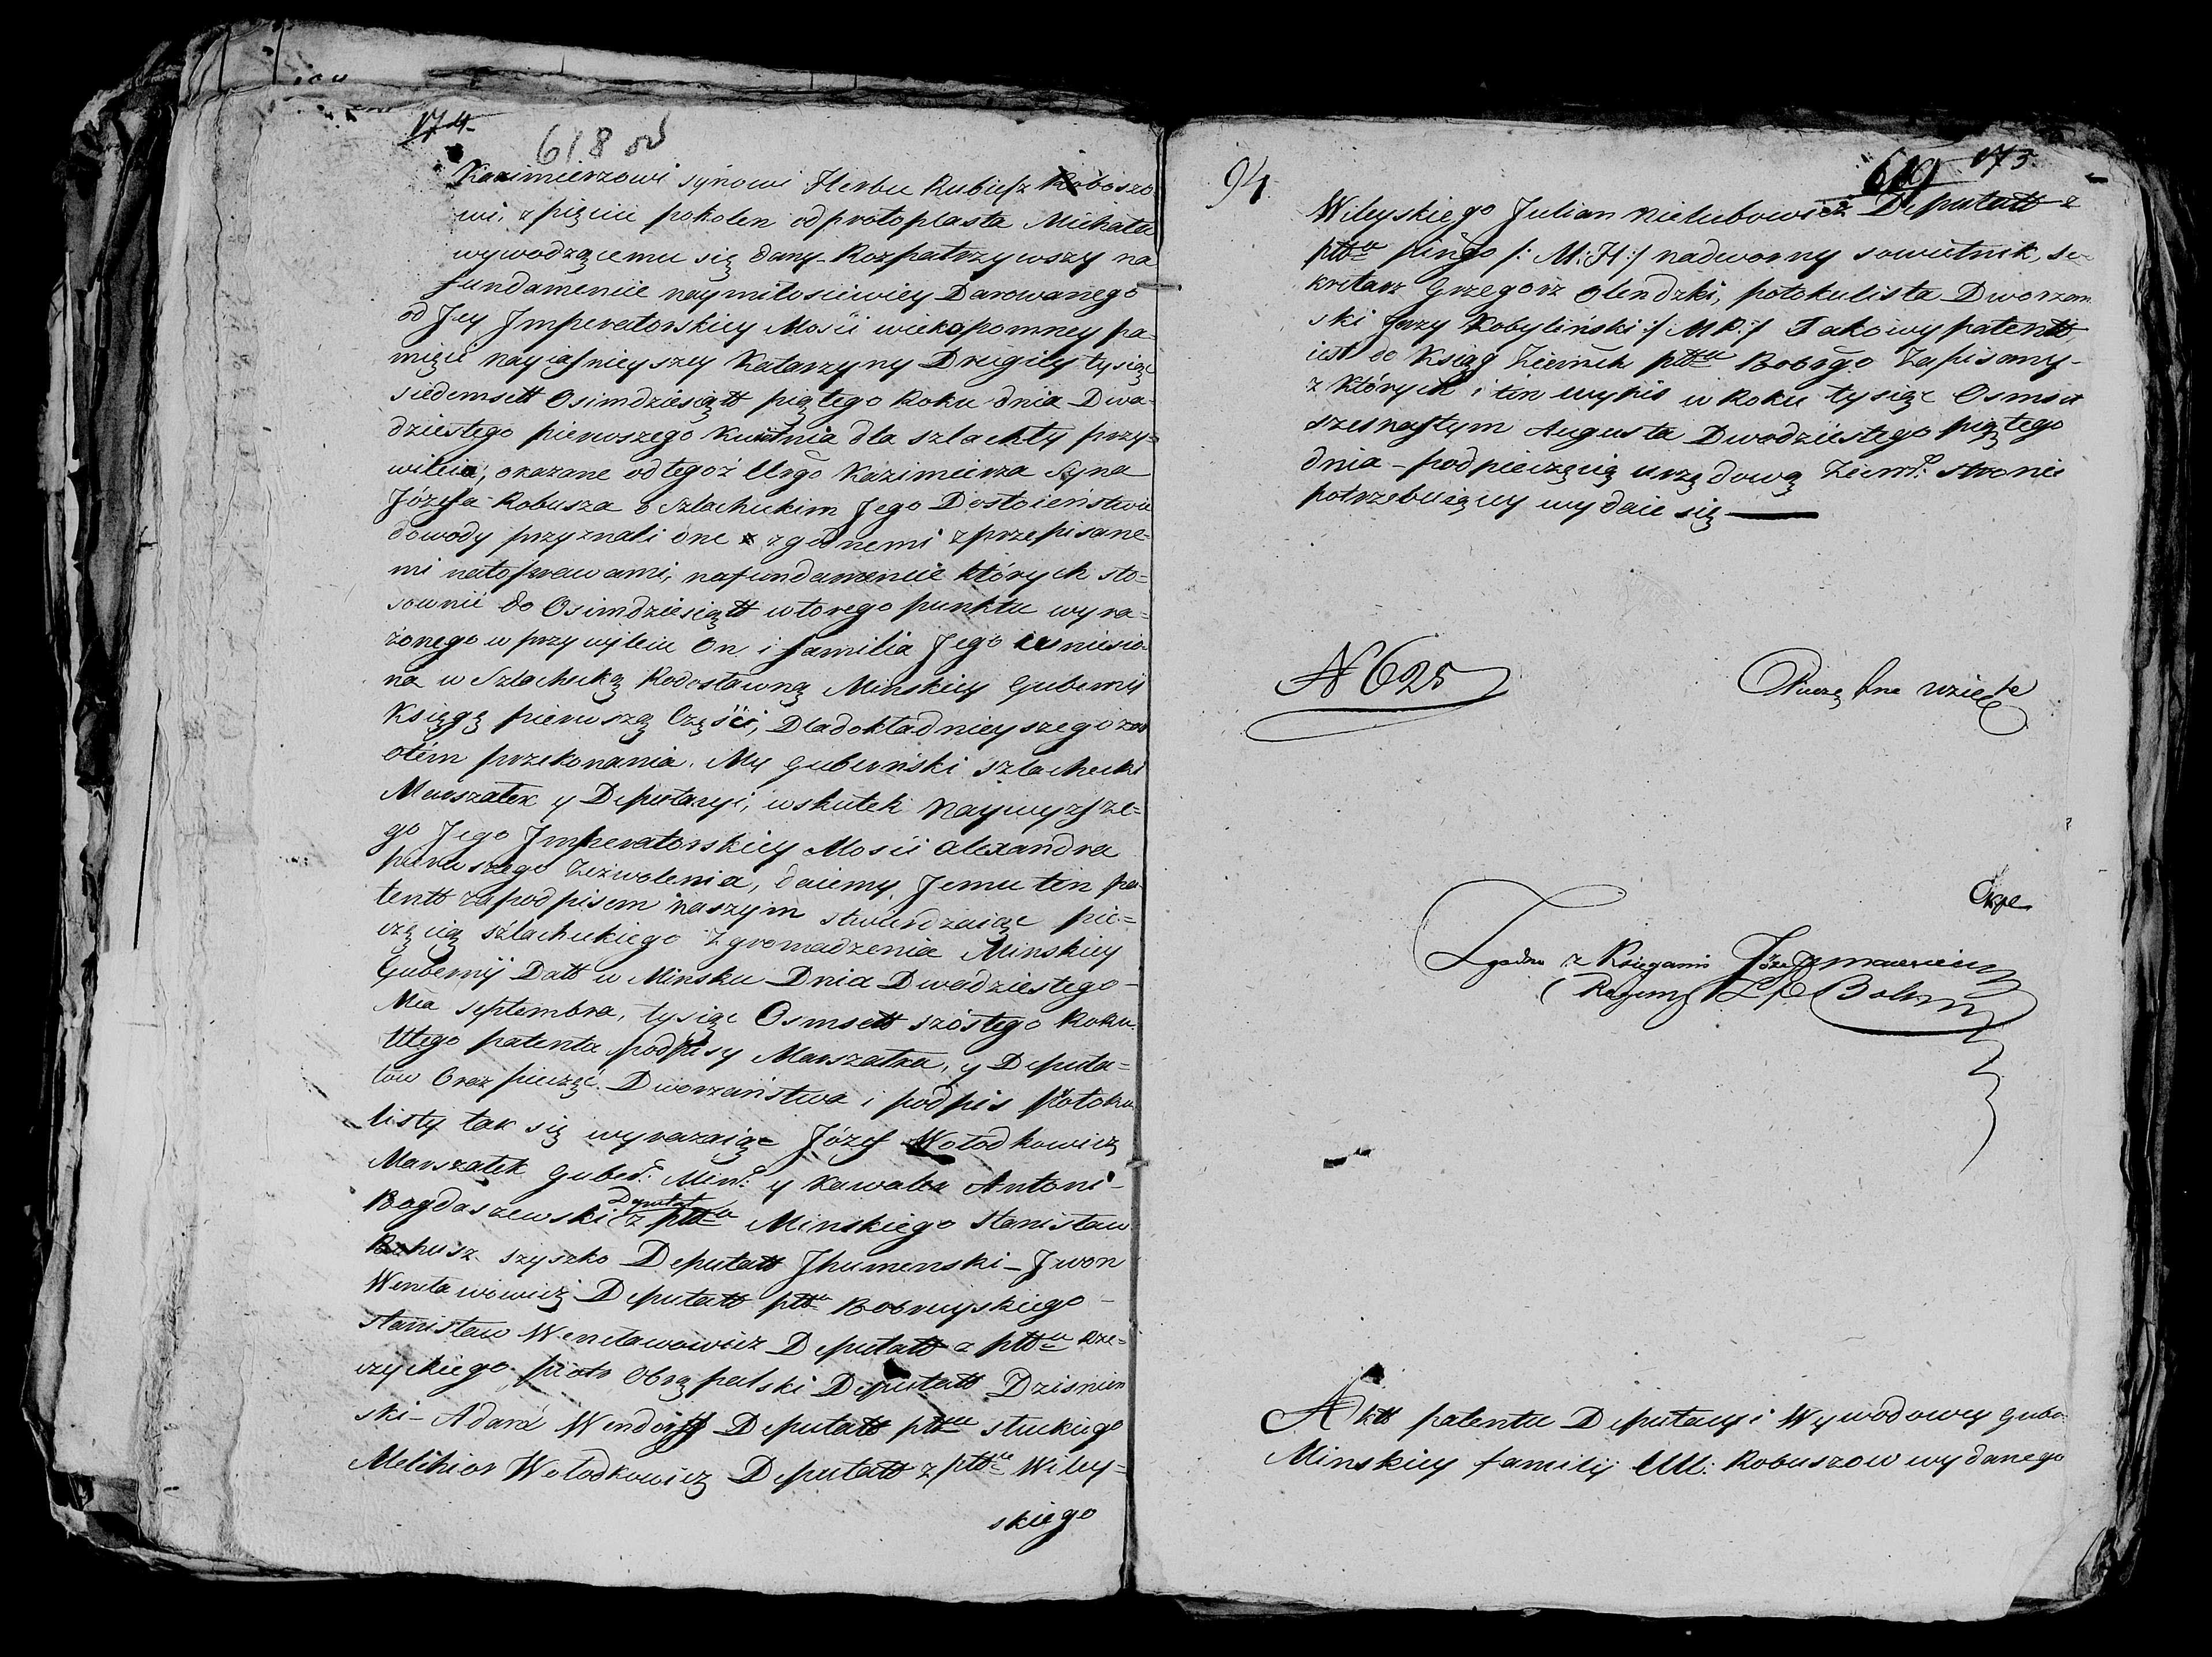 174.
618 об
Kazimierzowi synowi Herbu Rubiesz Roboszo
wi, z pięciu pokolen od protoplasta Michała
wywodzącemu się dany_ Rozpatrzywszy na
fundamencie naymiłosciwiey Darowanego
od Jey Imperatorskiey Mości wiekopomney pa-
mięci nayiaśnieyszey Katarzyny Drugiey tysiąc
siedemsett Osimdziesiątt piątego Roku dnia Dwa-
dziestego pierwszego Kwietnia dla szlachty przy=
wileia, okazane od tegoż Urgo Kazimierza Syna
Józefa Robusza o Szlacheckim Jego Dostoienstwie
dowody przyznali one zgodnemi z przepisane-
mi na to prawami, na fundamencie których sto=
sownie do Osimdziesiątt wtorego punktu wyra=
żonego w przywyleiu On i familia Jego wniesio-
na w Szlachecką Rodosławną Minskiey Gubernij
Księgę pierwszą Części, Dla dokładnieyszego zaś
otém przekonania. My Guberński szlachecki
Marszałek y Deputacyi, wskutek Naywyższe=
go Jego Imperatorskiey Mości Alexandra
pierwszego Zezwolenia, daiemy Jemu ten pa-
tentt za podpisem naszym stwierdzaiąc pie=
częcią szlacheckiego Zgromadzenia Minskiey
Gubernij Datt w Minsku Dnia Dwadziestego_
Mca septembra, tysiąc Osmsett szóstego Roku
Utego patenta podpisy Marszałka, y Deputa=
tow Oraz pieczęć Dworzaństwa i podpis Potoku
listy tak się wyrazaiąc Józef Wołodkowicz
Marszałek Guber: Min: y Kawaler Antoni_
Bogdaszewski Deputat z pttu Minskiego Stanisław
Bohusz szyszko Deputatt Ihumenski_ Jwon
Wencławowicz Deputatt pttu Bobruyskiego_
Stanisław Wencławowicz Deputatt z pttu Rze=
czyckiego Piotr Obrąpalski Deputatt Dzisnien
ski_ Adam Wendorff Deputatt pttu słuckiego
Melchior Wołodkowicz Deputatt z pttu Wiley=
skiego
94
619 175
Wileyskiego Julian Nielubowicz Deputatt z
pttu Pingo /: M: H:/ nadworny sowietnik, se-
kretarz Grzegorz Olendzki, potokulista Dworzan
ski Jerzy Kobyliński :/ M P:/ Takowy patentt,
iest do Ksiąg Ziemch pttu Bobrgo Zapisany_
z których i ten wypis w Roku tysiąc Osmset
szesnastym Augusta Dwadziestego piątego
dnia_ pod pieczęcią urzędową Ziem: stronie
potrzebuiącey wydaie się_
N 625
wzięte
Zgodno z Księgami
Regent
Aktt patentu Deputacyi Wywodowey Gube.
Minskiey familij UU: Robuszow wydanego